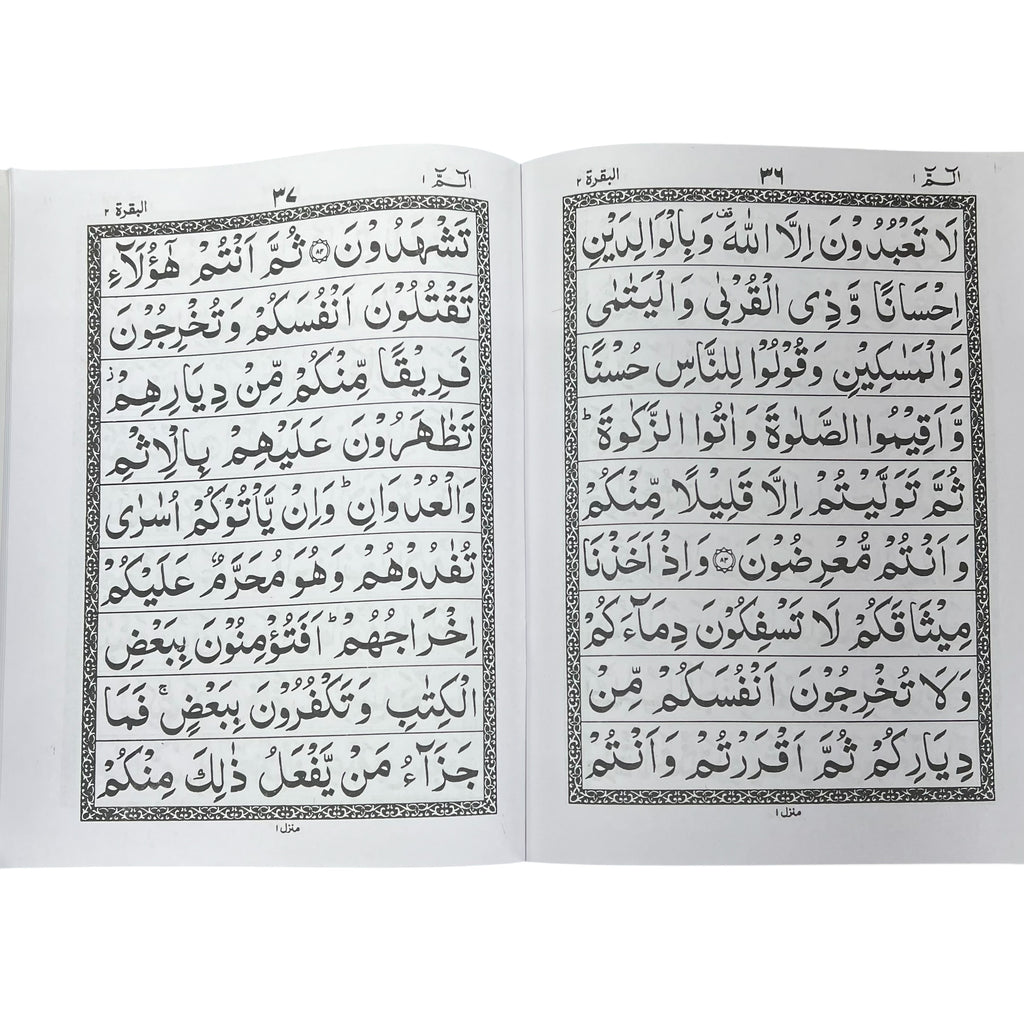 الٓمّٓ ١
٣٦
البقرة ٢
لَا تَعْبُدُوْنَ اِلَّا اللّٰهَ ۫ وَبِالْوَالِدَيْنِ
اِحْسَانًا وَّذِى الْقُرْبٰى وَالْيَتٰمٰى
وَالْمَسٰكِيْنِ وَقُوْلُوْا لِلنَّاسِ حُسْنًا
وَّاَقِيْمُوا الصَّلٰوةَ وَاٰتُوا الزَّكٰوةَ ؕ
ثُمَّ تَوَلَّيْتُمْ اِلَّا قَلِيْلًا مِّنْكُمْ
وَاَنْتُمْ مُّعْرِضُوْنَ ۝٨٣ وَاِذْ اَخَذْنَا
مِيْثَاقَكُمْ لَا تَسْفِكُوْنَ دِمَآءَكُمْ
وَلَا تُخْرِجُوْنَ اَنْفُسَكُمْ مِّنْ
دِيَارِكُمْ ثُمَّ اَقْرَرْتُمْ وَاَنْتُمْ
منزل ١
الٓمّٓ ١
٣٧
البقرة ٢
تَشْهَدُوْنَ ۝٨٤ ثُمَّ اَنْتُمْ هٰٓؤُلَآءِ
تَقْتُلُوْنَ اَنْفُسَكُمْ وَتُخْرِجُوْنَ
فَرِيْقًا مِّنْكُمْ مِّنْ دِيَارِهِمْ ؗ
تَظٰهَرُوْنَ عَلَيْهِمْ بِالْاِثْمِ
وَالْعُدْوَانِ ؕ وَاِنْ يَّاْتُوْكُمْ اُسٰرٰى
تُفٰدُوْهُمْ وَهُوَ مُحَرَّمٌ عَلَيْكُمْ
اِخْرَاجُهُمْ ؕ اَفَتُؤْمِنُوْنَ بِبَعْضِ
الْكِتٰبِ وَتَكْفُرُوْنَ بِبَعْضٍ ۚ فَمَا
جَزَآءُ مَنْ يَّفْعَلُ ذٰلِكَ مِنْكُمْ
منزل ١